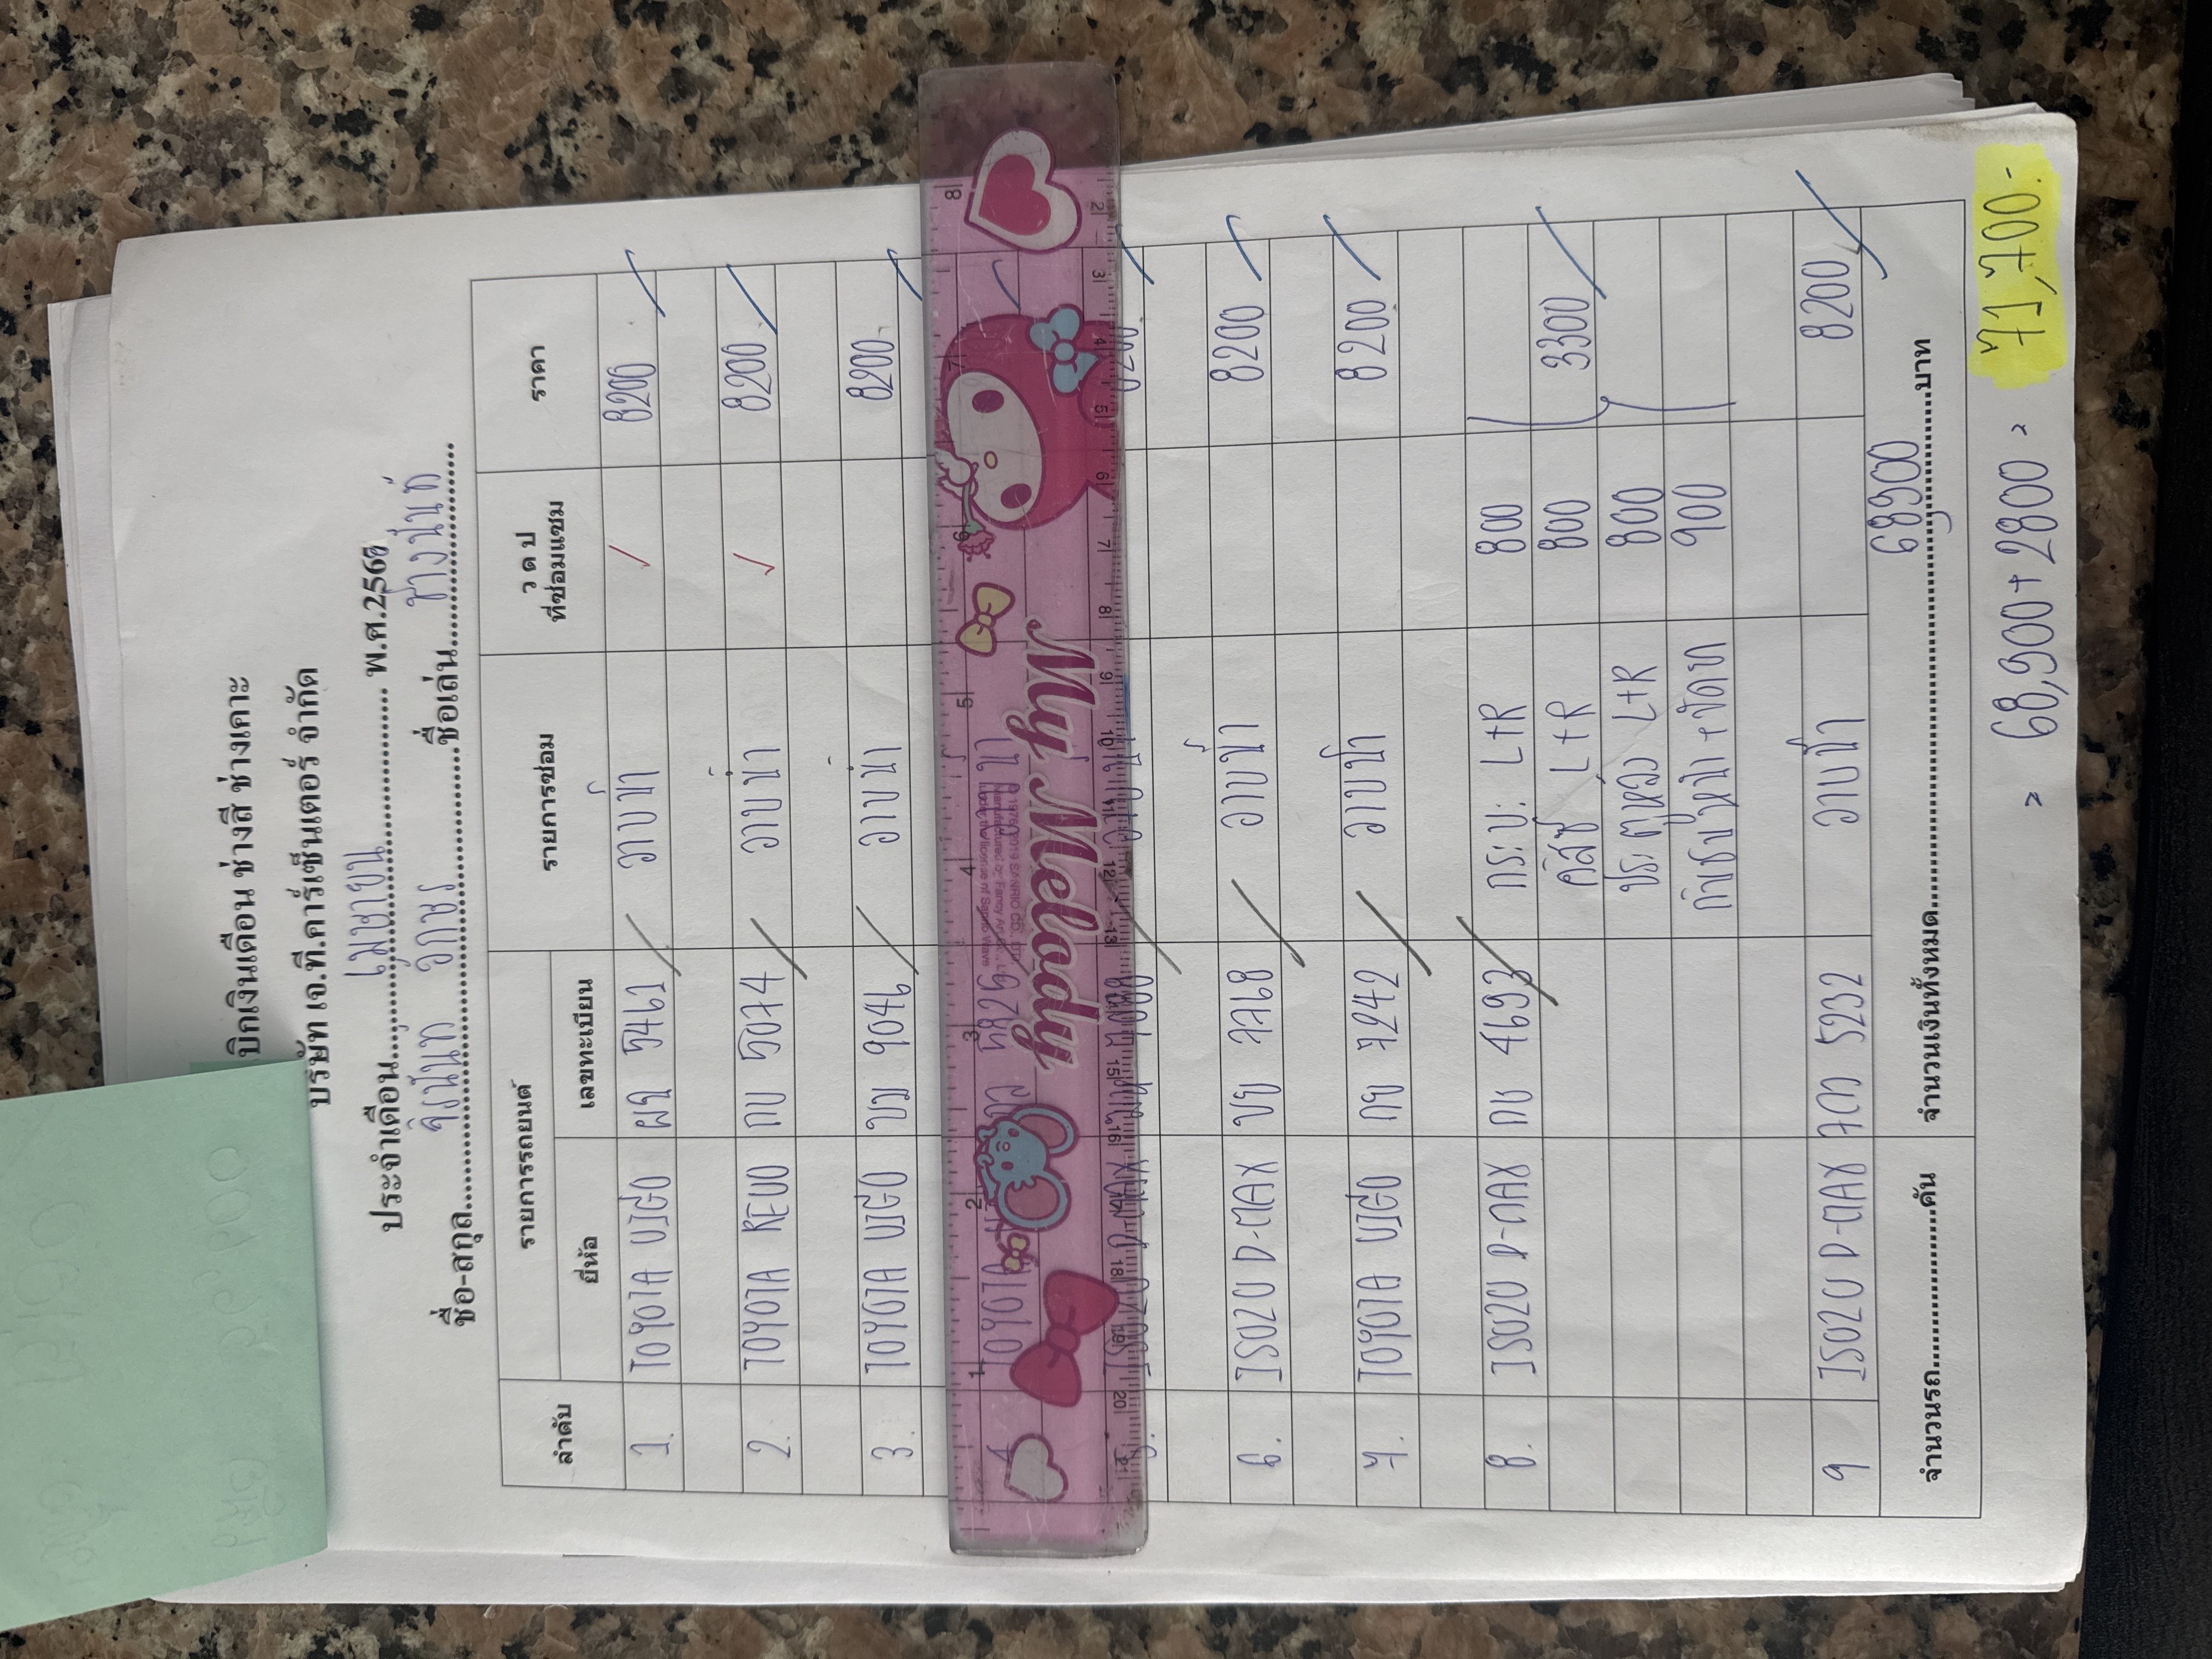 บิกเงินเดือน ช่างสี ช่างเคาะ
บริษัท เจ.ที.คาร์เซ็นเตอร์ จำกัด
ประจำเดือน เมษายน พ.ศ.2568
ชื่อ-สกุล จิรนันท ชื่อเล่น ช่างนนท์
ลำดับ รายการรถยนต์ รายการซ่อม ว ด ป ที่ซ่อมแซม ราคา
ยี่ห้อ เลขทะเบียน
1. TOYOTA VIGO ผฉ 5461 วาบน้ำ ✓ 8200
2. TOYOTA REVO กบ 5074 วาบน้ำ ✓ 8200
3. TOYOTA VIGO บม 9046 วาบน้ำ 8200
4 TOYOTA
ISUZU D-MAX 8200
6. ISUZU D-MAX ขย 7768 วาบน้ำ 8200
7. TOYOTA VIGO กย 7242 วาบน้ำ 8200
8. ISUZU D-MAX กษ 4693 กระบะ L+R 800
L+R 800 3300
ประตูหลัง L+R 800
900
9 ISUZU D-MAX 7กก 5232 วาบน้ำ 8200
จำนวนรถ คัน จำนวนเงินทั้งหมด 68900 บาท
= 68,900 + 2800 = 71,700.-
My Melody